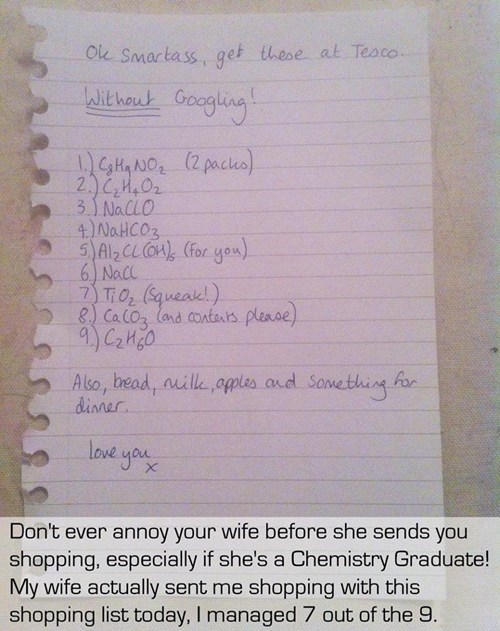 Ok Smartass, get these at Tesco.
Without Googling!
1.) C8H9NO2 (2 packs)
2.) C2H4O2
3.) NaClO
4.) NaHCO3
5.) Al2Cl(OH)5 (for you)
6.) NaCl
7.) TiO2 (Squeak!)
8.) CaCO3 (and contents please)
9.) C2H6O
Also, bread, milk, apples and something for
dinner.
love you
x
Don't ever annoy your wife before she sends you
shopping, especially if she's a Chemistry Graduate!
My wife actually sent me shopping with this
shopping list today, I managed 7 out of the 9.